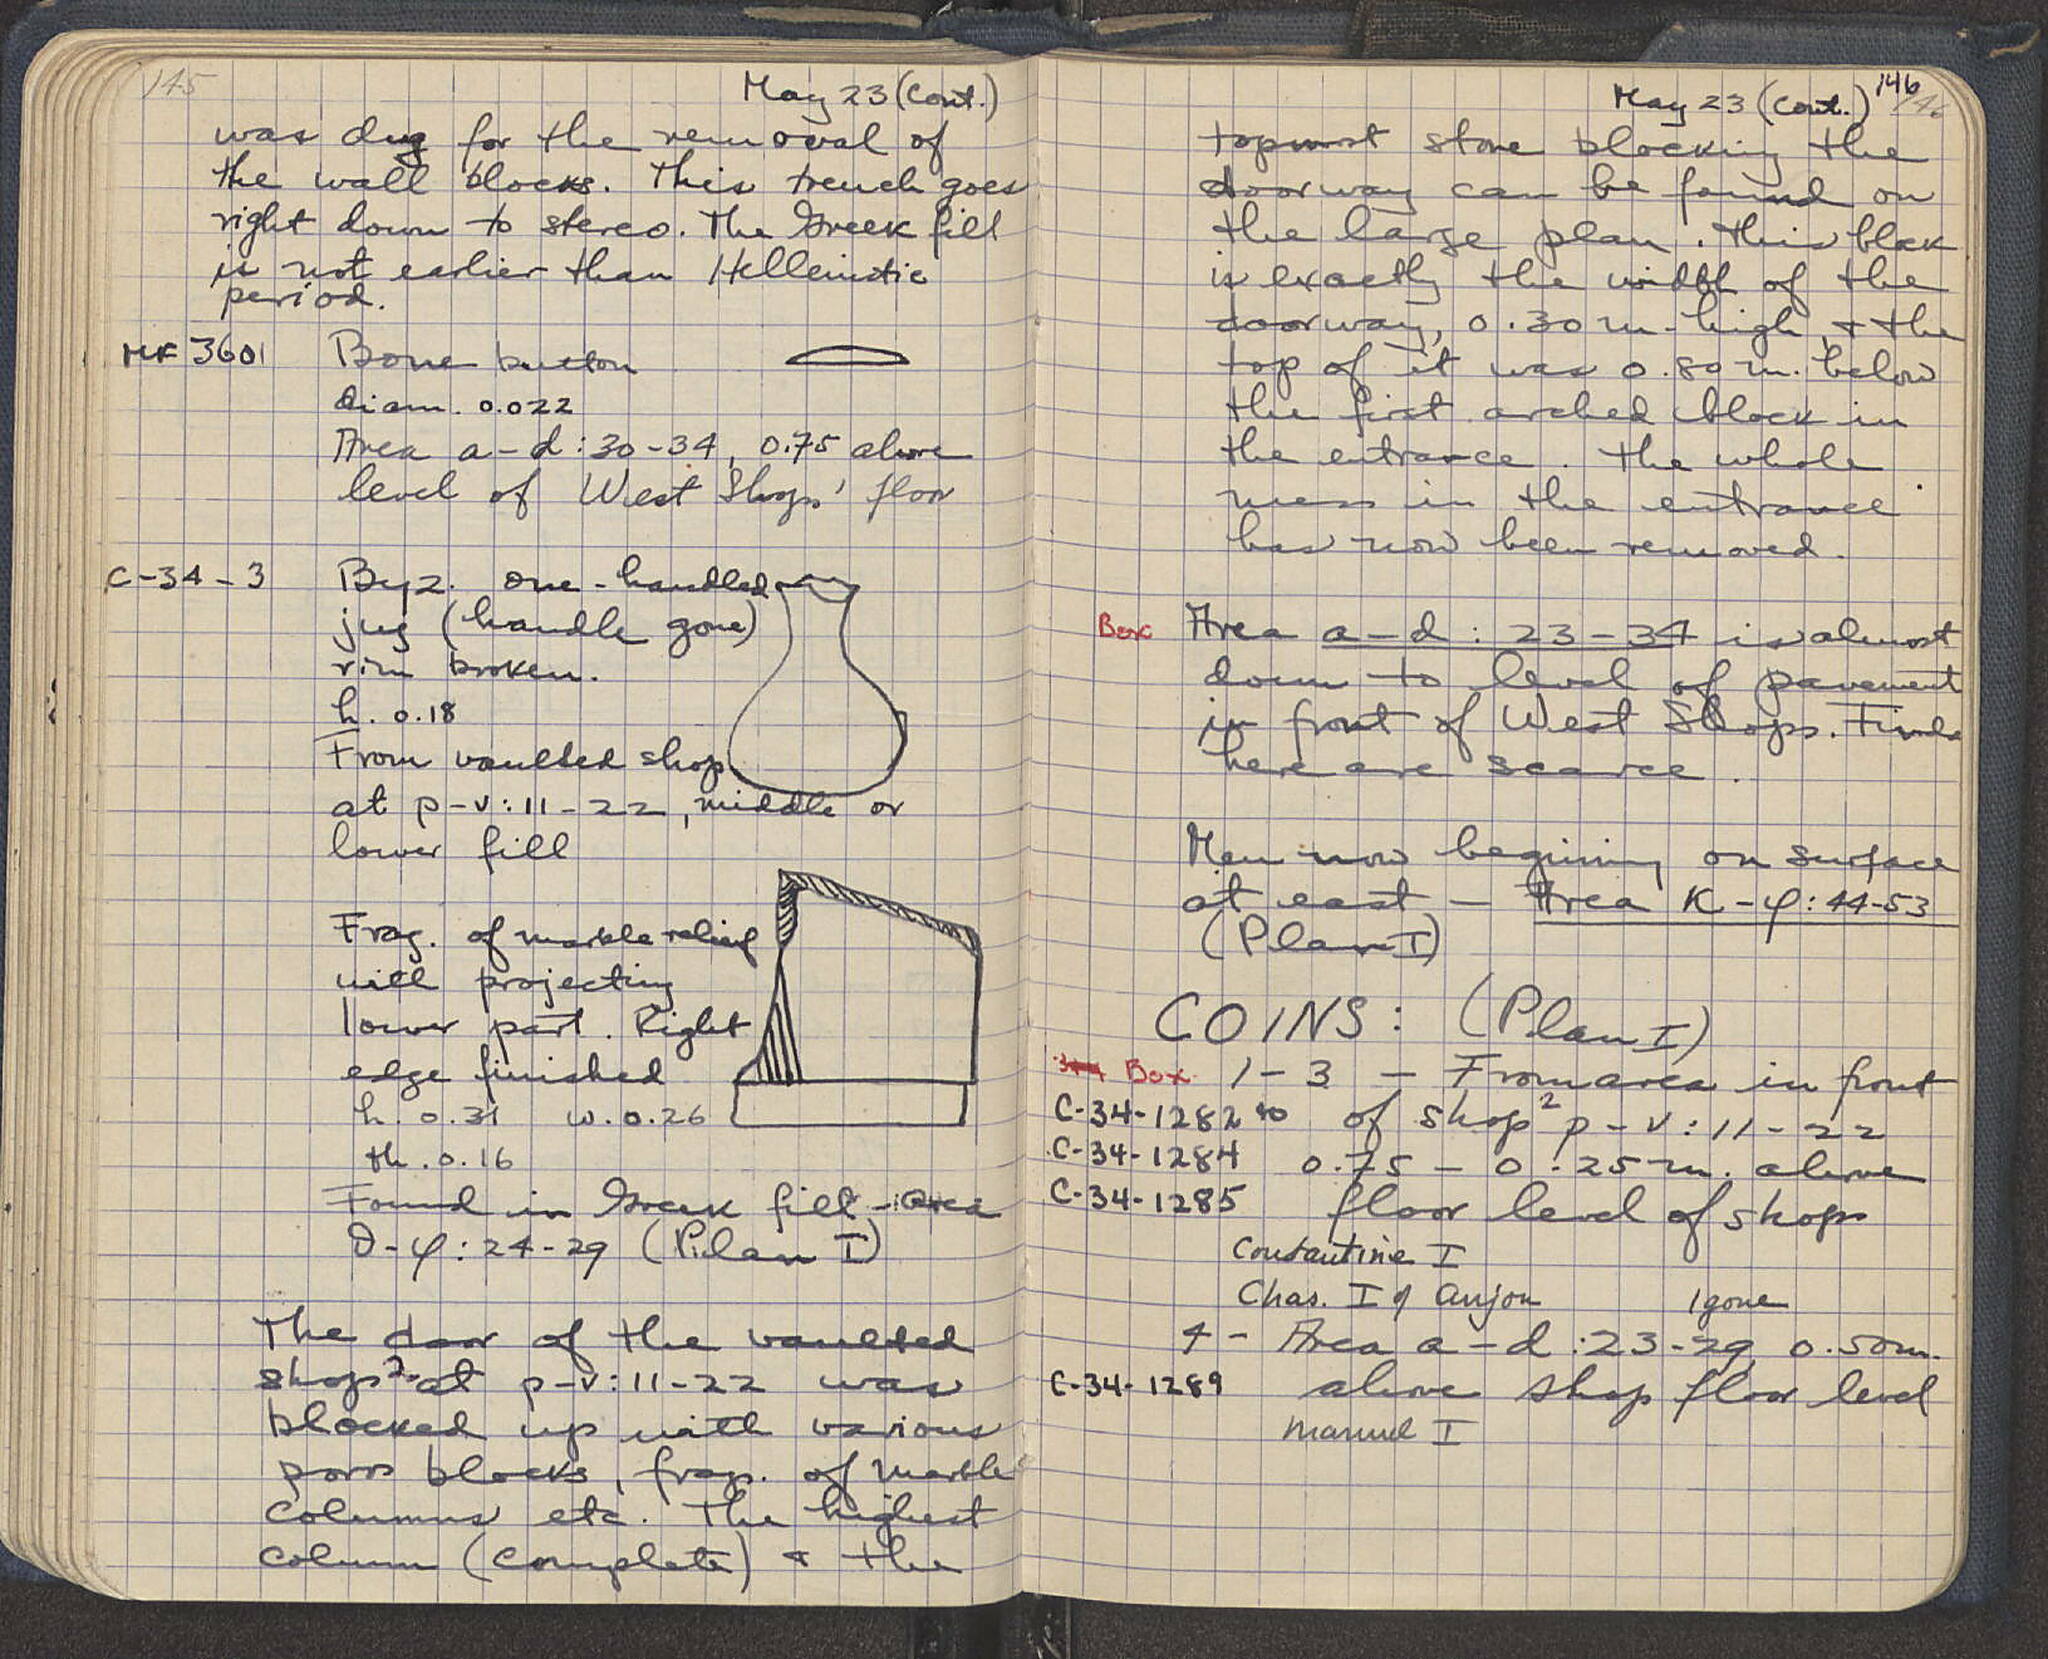 145
May 23 (Cont.)
was dug for the removal of
the wall blocks. This trench goes
right down to stereo. The Greek fill
is not earlier than Hellenistic
period.
MF 3601 Bone button
diam. 0.022
Area a-d:30-34, 0.75 above
level of West Shops' floor
C-34-3 Byz. one-handled
jug (handle gone)
rim broken.
h. 0.18
From vaulted shop
at p-v:11-22, middle or
lower fill
Frag. of marble relief
with projecting
lower part. Right
edge finished
h. 0.31 w. 0.26
th. 0.16
Found in Greek fill - area
-φ:24-29 (Plan I)
The door of the vaulted
shop 2 at p-v:11-22 was
blocked up with various
poros blocks, frag. of marble
columns etc. The highest
column (complete) & the
May 23 (Cont.) 146
146
topmost stone blocking the
doorway can be found on
the large plan. This block
is exactly the width of the
doorway, 0.30 m. high, & the
top of it was 0.80 m. below
the first arched block in
the entrance. The whole
mess in the entrance
has now been removed.
Box Area a-d: 23-34 is almost
down to level of pavement
in front of West Shops. Finds
here are scarce.
Men now begining on surface
at east - Area K-φ:44-53
(Plan I)
COINS: (Plan I)
Box 1-3 - From area in front
C-34-1282 to of shop 2 p-v:11-22
C-34-1284 0.75-0.25 m. above
C-34-1285 floor level of shops
Constantine I
Chas. I of Anjou 1 gone
4 - Area a-d:23-29 0.50 m.
C-34-1289 above shop floor level
Manuel I